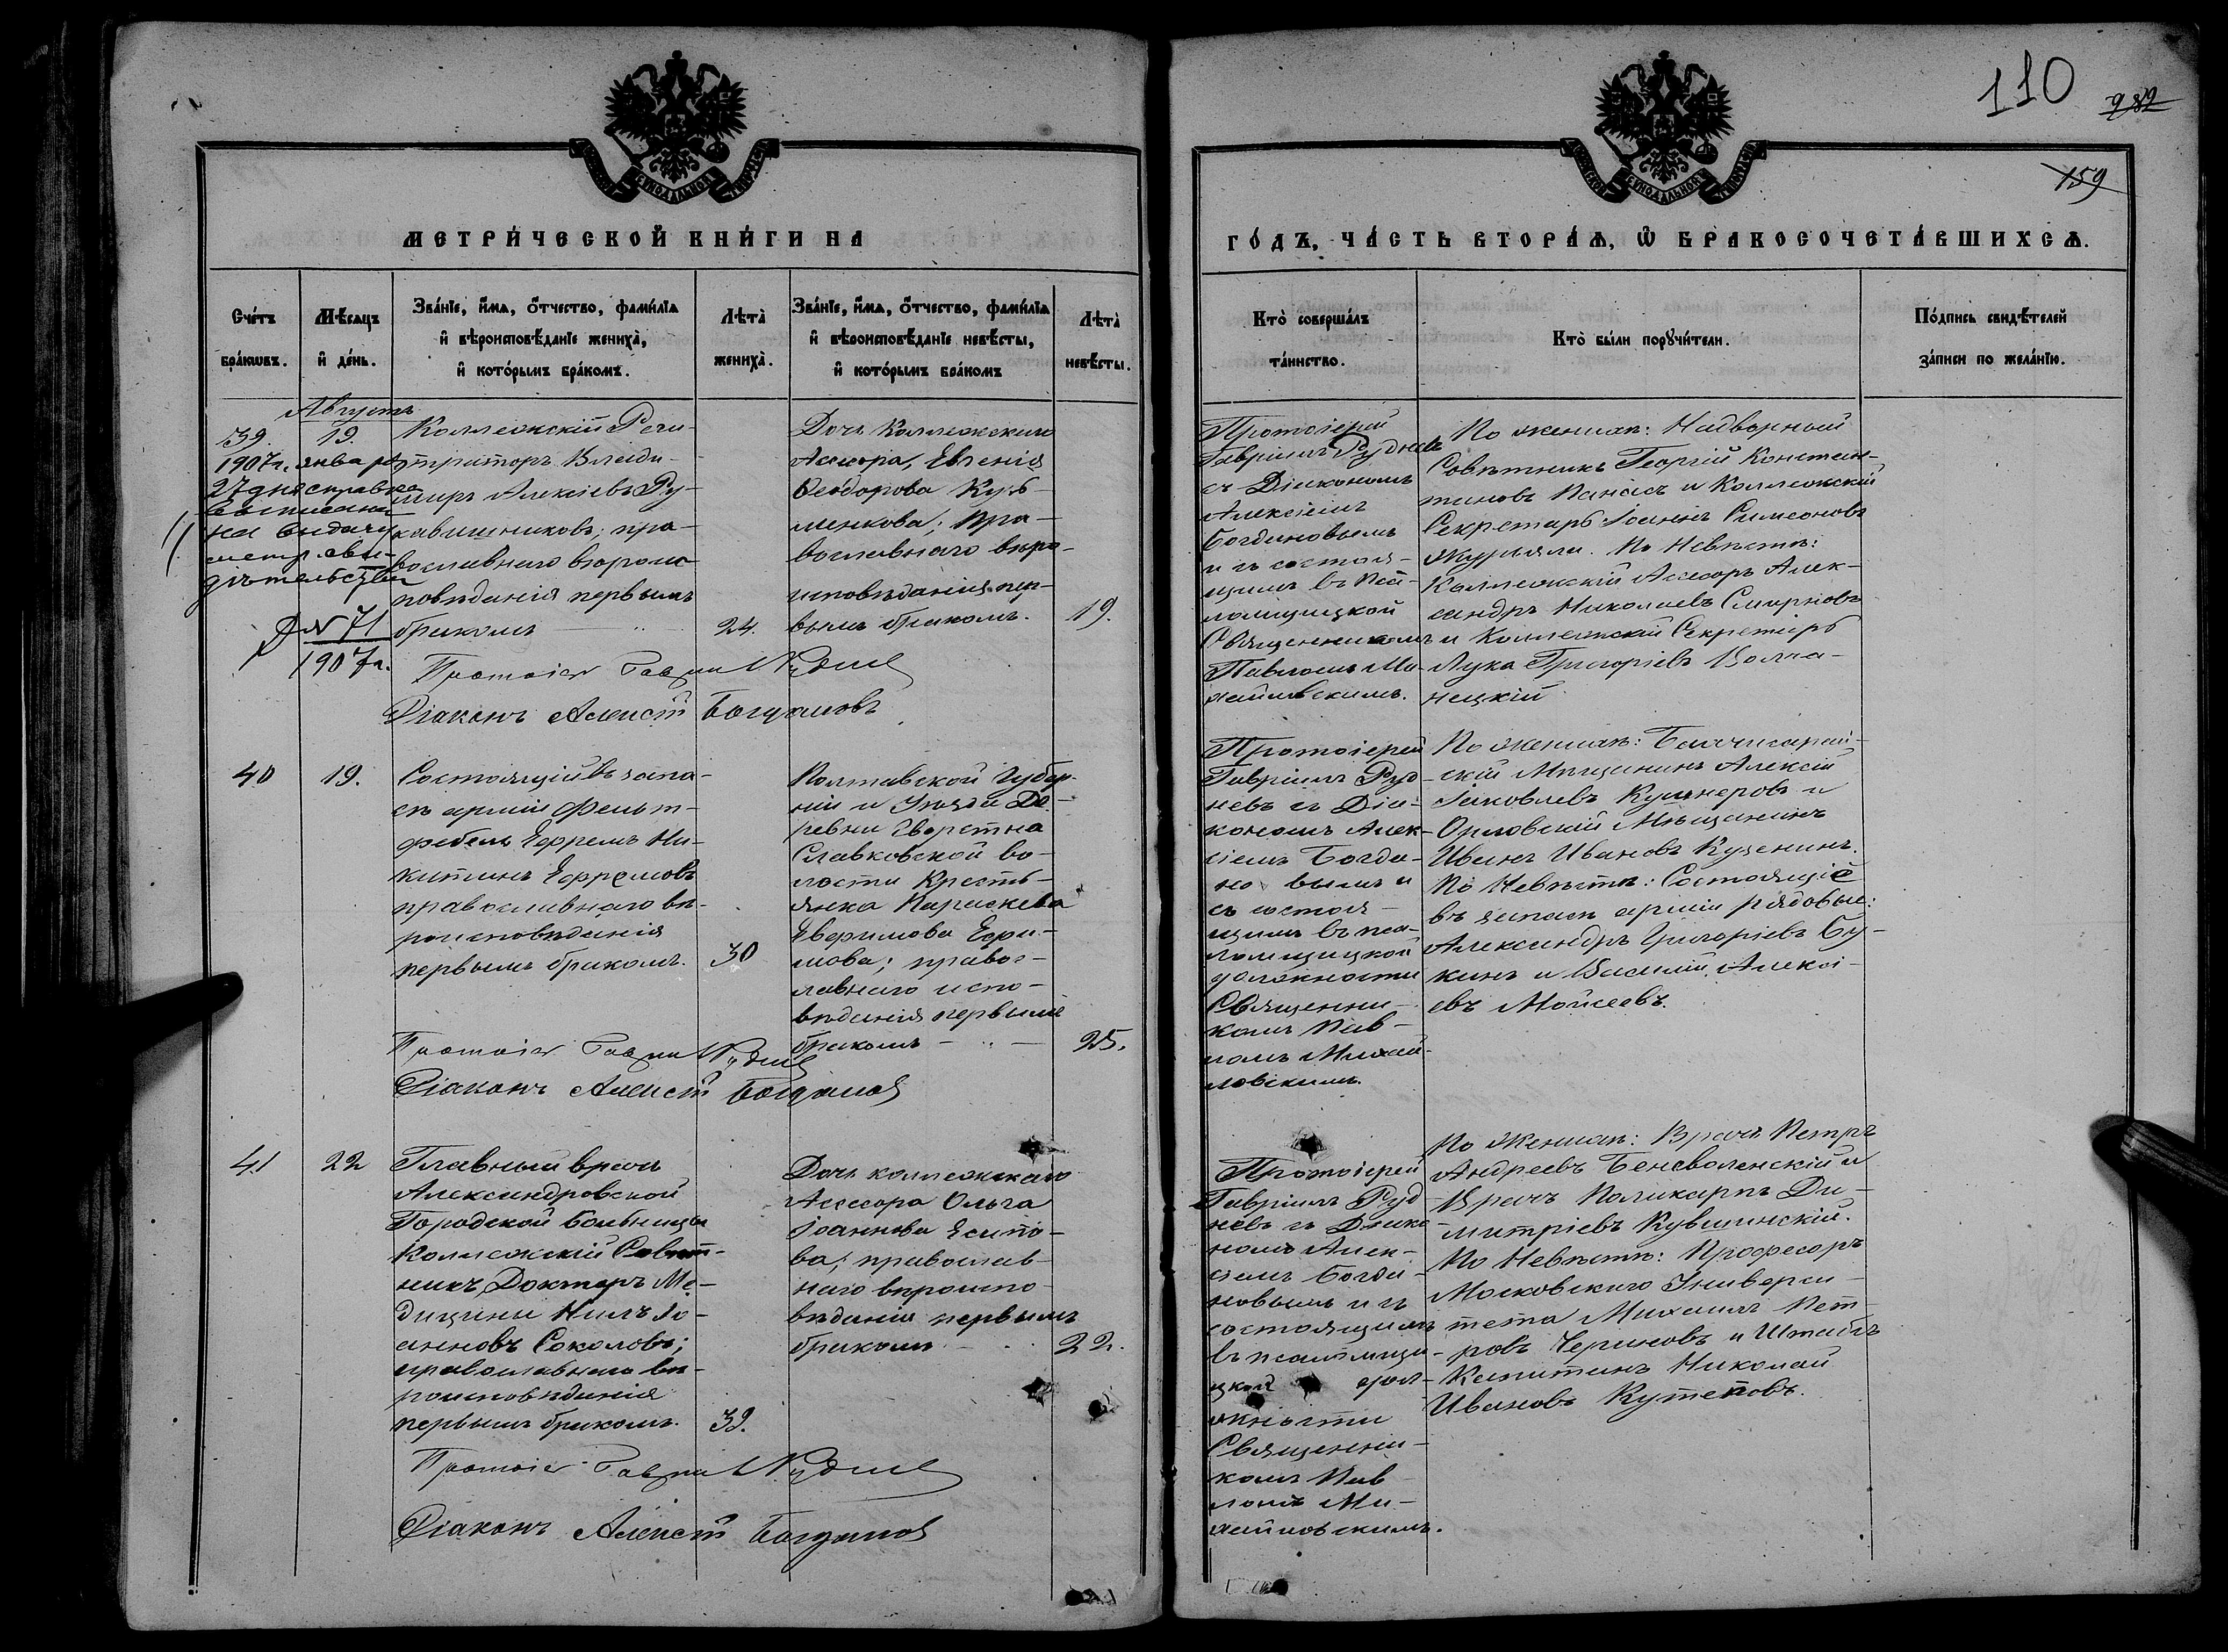 110
282
159
МЕТРИ́ЧЕСКОЙ КНИ́ГИ НА
ГО́ДЪ, ЧА́СТЬ ВТОРА́Я, Ѡ БРАКОСОЧЕТА́ВШИХСѦ.
Сче́тъ бра́кѡвъ.
Мѣ́сѧцъ и де́нь.
Зва́нїе, и́мѧ, о́тчество, фами́лїѧ
и вѣроисповѣ́данїе жениха̀,
и кото́рымъ бра́комъ.
Лѣта̀ жениха̀.
Зва́нїе, и́мѧ, о́тчество, фами́лїѧ
и вѣроисповѣ́данїе невѣ́сты,
и кото́рымъ бра́комъ
Лѣта̀ невѣ́сты.
Кто̀ соверша́лъ
та́инство.
Кто̀ бы́ли порꙋчи́тели.
По́дпись свидѣ́телей
за́писи по жела́нїю.
Августъ
39.
19.
1907 г. января
27 дня справка
выписана
на выдачу
метр. сви-
дѣтельства
№ 71
1907 г.
Коллежскій Реги-
страторъ Влади-
миръ Алексіевъ Ру-
кавишниковъ; пра-
вославнаго вѣроис-
повѣданія первымъ
бракомъ
24.
Дочь Коллежскаго
Ассесора, Евгенія
Ѳеодорова Кузь-
менкова; Пра-
вославнаго вѣро-
исповѣданія пер-
вымъ бракомъ.
19.
Протоіерей
Гавріилъ Рудневъ
съ Діакономъ
Алексіемъ
Богдановымъ
и съ состоя-
щимъ въ пса-
ломщицкой
Священникомъ
Павломъ Ми-
хайловскимъ.
По женихѣ: Надворный
Совѣтникъ Георгій Констан-
тиновъ Панасъ и Коллежскій
Секретарь Іоаннъ Симеоновъ
Журьяли. По Невѣстѣ:
Коллежскій Ассесоръ Алек-
сандръ Николаевъ Смирновъ
и Коллежскій Секретарь
Лука Григоріевъ Волча-
нецкій
Протоіер Гавріилъ Рудневъ
Діаконъ Алексій Богдановъ
40
19.
Состоящій въ запа-
сѣ арміи Фельд-
фебель Ефремъ Ни-
китинъ Ефремовъ
православнаго вѣ-
роисповѣданія
первымъ бракомъ.
30
Полтавской Губер-
ніи и Уѣзда Де-
ревни
Славковской во-
лости Кресть-
янка Параскева
православ-
лавнаго испо-
вѣданія первымъ
бракомъ
25.
Протоіерей
Гавріилъ Руд-
невъ съ Діа-
кономъ Алек-
сіемъ Богда-
новымъ и
съ состоя-
щимъ въ пса-
ломщицкой
должности
Священни-
комъ Пав-
ломъ Михай-
ловскимъ.
По женихѣ: Бахчисарай-
скій Мѣщанинъ Алексій
Іаковлевъ Кушнеровъ и
Орловскій Мѣщанинъ
Иванъ Ивановъ Кузенинъ.
По Невѣстѣ: Состоящіе
въ запасѣ арміи рядовые:
Александръ Григоріевъ Бу-
кинъ и Василій Алексі-
евъ Мойсеевъ.
Протоіер Гавріилъ Рудневъ
Діаконъ Алексій Богдановъ
41
22
Главный врачъ
Александровской
Городской Больницы
Коллежскій Совѣт-
никъ, Докторъ Ме-
дицины Нилъ Іо-
анновъ Соколовъ;
православнаго вѣ-
роисповѣданія
первымъ бракомъ.
39.
Дочь коллежскаго
Ассесора Ольга
Іоаннова Есипо-
ва; православ-
наго вѣроиспо-
вѣданія первымъ
бракомъ
22.
Протоіерей
Гавріилъ Руд-
невъ съ Діако-
номъ Алек-
сіемъ Богда-
новымъ и съ
состоящимъ
въ псаломщи-
цкой дол-
жности
Священни-
комъ Пав-
ломъ Ми-
хайловскимъ.
По Женихѣ: Врачъ Петръ
Андреевъ Беневоленскій и
Врачъ Поликарпъ Ди-
митріевъ Кувшинскій.
По Невѣстѣ: Професоръ
Московскаго Универси-
тета Михаилъ Пет-
ровъ Чериновъ и Штабсъ
Капитанъ Николай
Ивановъ Кутеповъ.
Протоіер Гавріилъ Рудневъ
Діаконъ Алексій Богдановъ